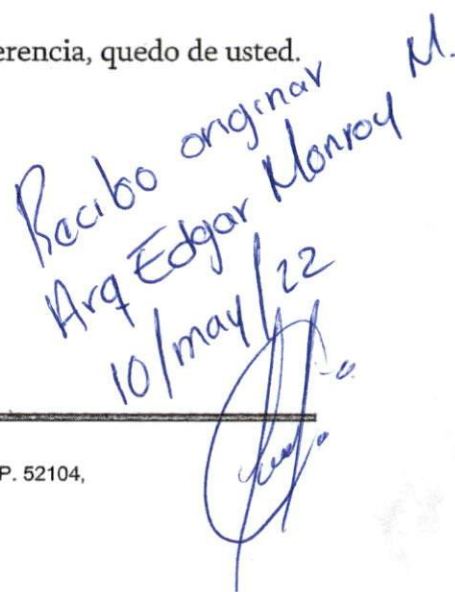 erencia, quedo de usted.
Recibo original
Arq Edgar Monroy M.
10/may/22
P. 52104,